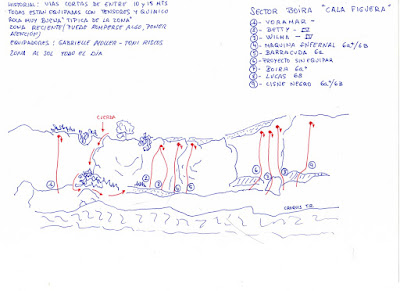 HISTORIAL: VIAS CORTAS DE ENTRE 10 y 15 MTS
TODAS ESTAN EQUIPADAS CON TENSORES y QUIMICO
ROCA MUY BUENA "TIPICA DE LA ZONA"
ZONA RECIENTE/PUEDE ROMPERSE ALGO, PONER
ATENCION)
EQUIPADORES: GABRIELLE MOLLER - TONI
ZONA AL SOL TODO EL DIA
SECTOR BOIRA "CALA FIGUERA"
① - VORAMAR -
② - BETTY - IV
③ - WILMA - IV
④ - MAQUINA INFERNAL 6a+/6B
⑤ - BARRACUDA 6a
⑥ - PROYECTO SIN EQUIPAR
⑦ - BOIRA 6a+
⑧ - LUCAS 6B
⑨ - CISNE NEGRO 6a+/6B
CUERDA
①
②
③
④
⑤
⑥
⑦
⑧
⑨